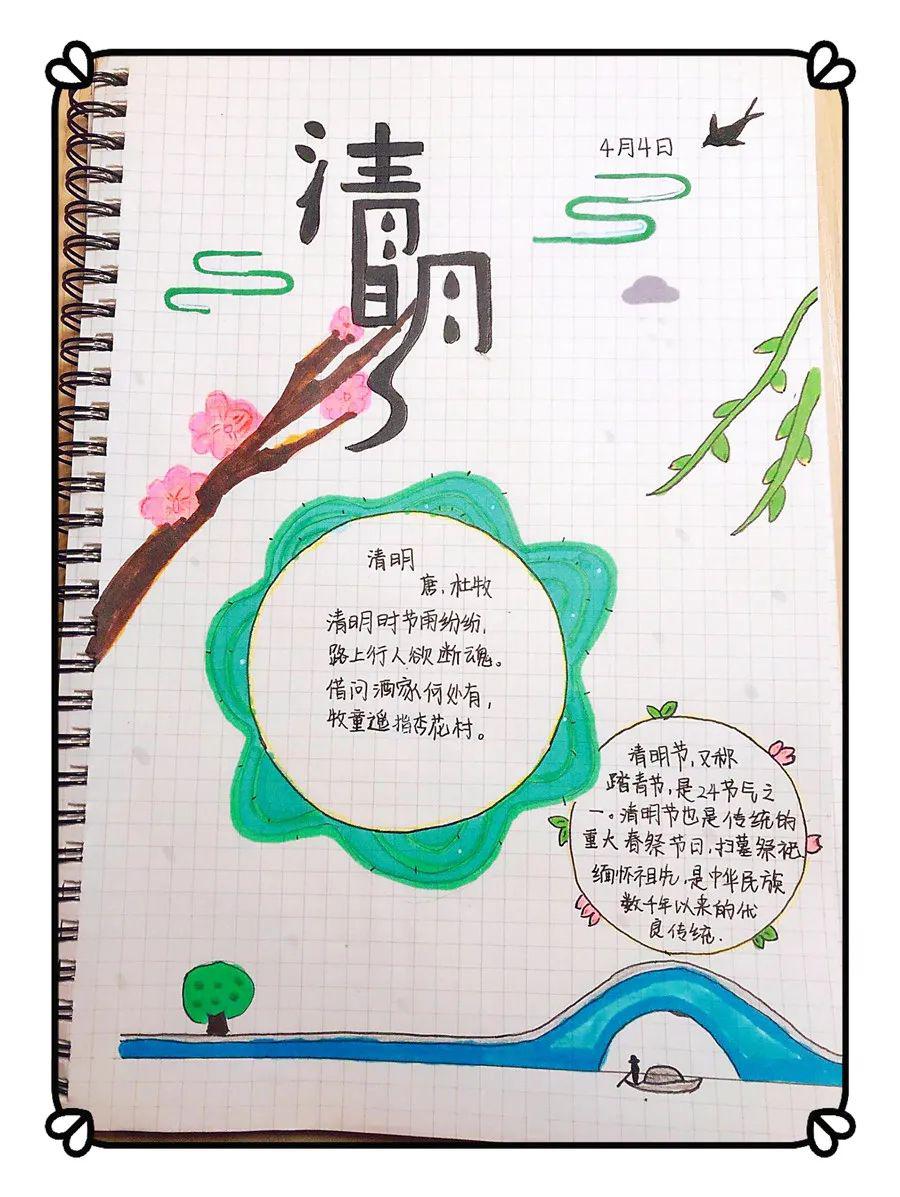 清明
4月4日
清明
唐.杜牧
清明时节雨纷纷,
路上行人欲断魂。
借问酒家何处有,
牧童遥指杏花村。
清明节,又称
踏青节,是24节气之
一。清明节也是传统的
重大春祭节日,扫墓祭祀
缅怀祖先,是中华民族
数千年以来的优
良传统.